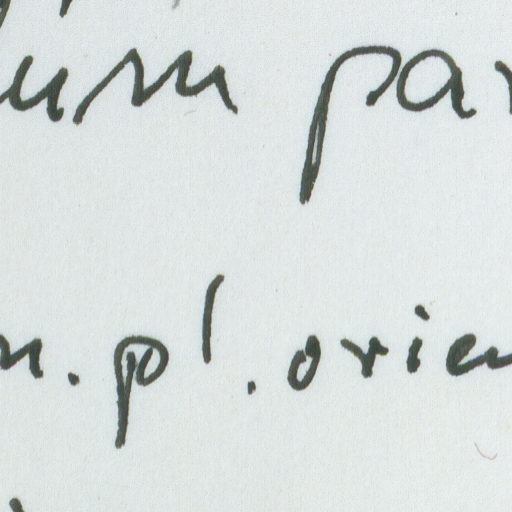 um par
n. pl. orien